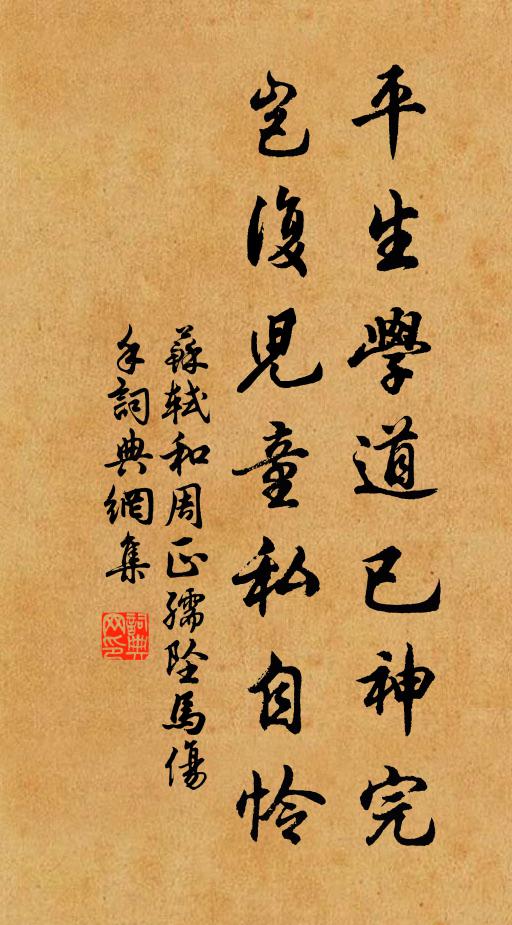 平生學道已神完
豈復兒童私自怜
蘇軾和周正孺墜馬傷
手詞典網集
詞典網印